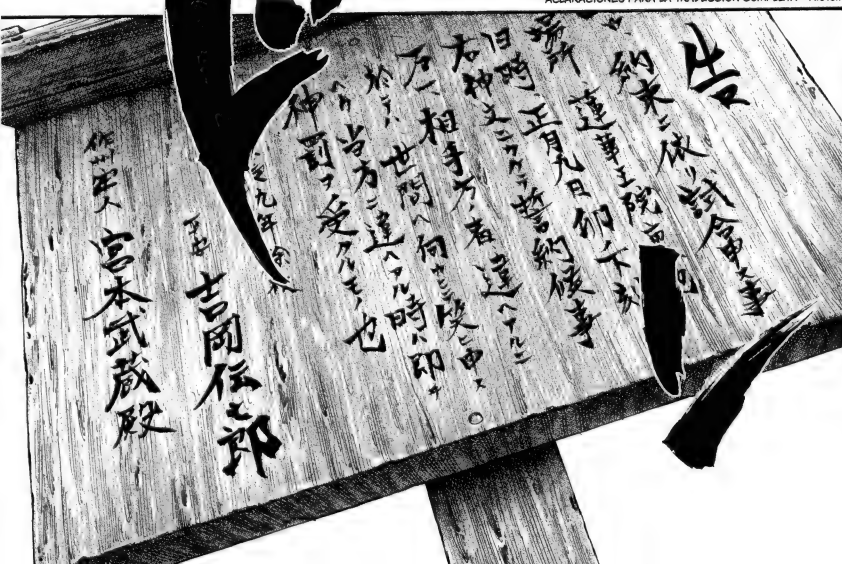 告
約束ニ依リ試合申ス事
場所 蓮華王院
日時、正月九日卯下刻
右神文ニカケテ誓約候事
万一、相手方ノ者違ヘアルニ
於テハ世間ヘ何カヒテ笑ヒ申ス
ヘク当方ニ違ヘアル時ハ即チ
神罰ヲ受クルモノ也
九年
平安 吉岡伝七郎
作州牢人 宮本武蔵殿